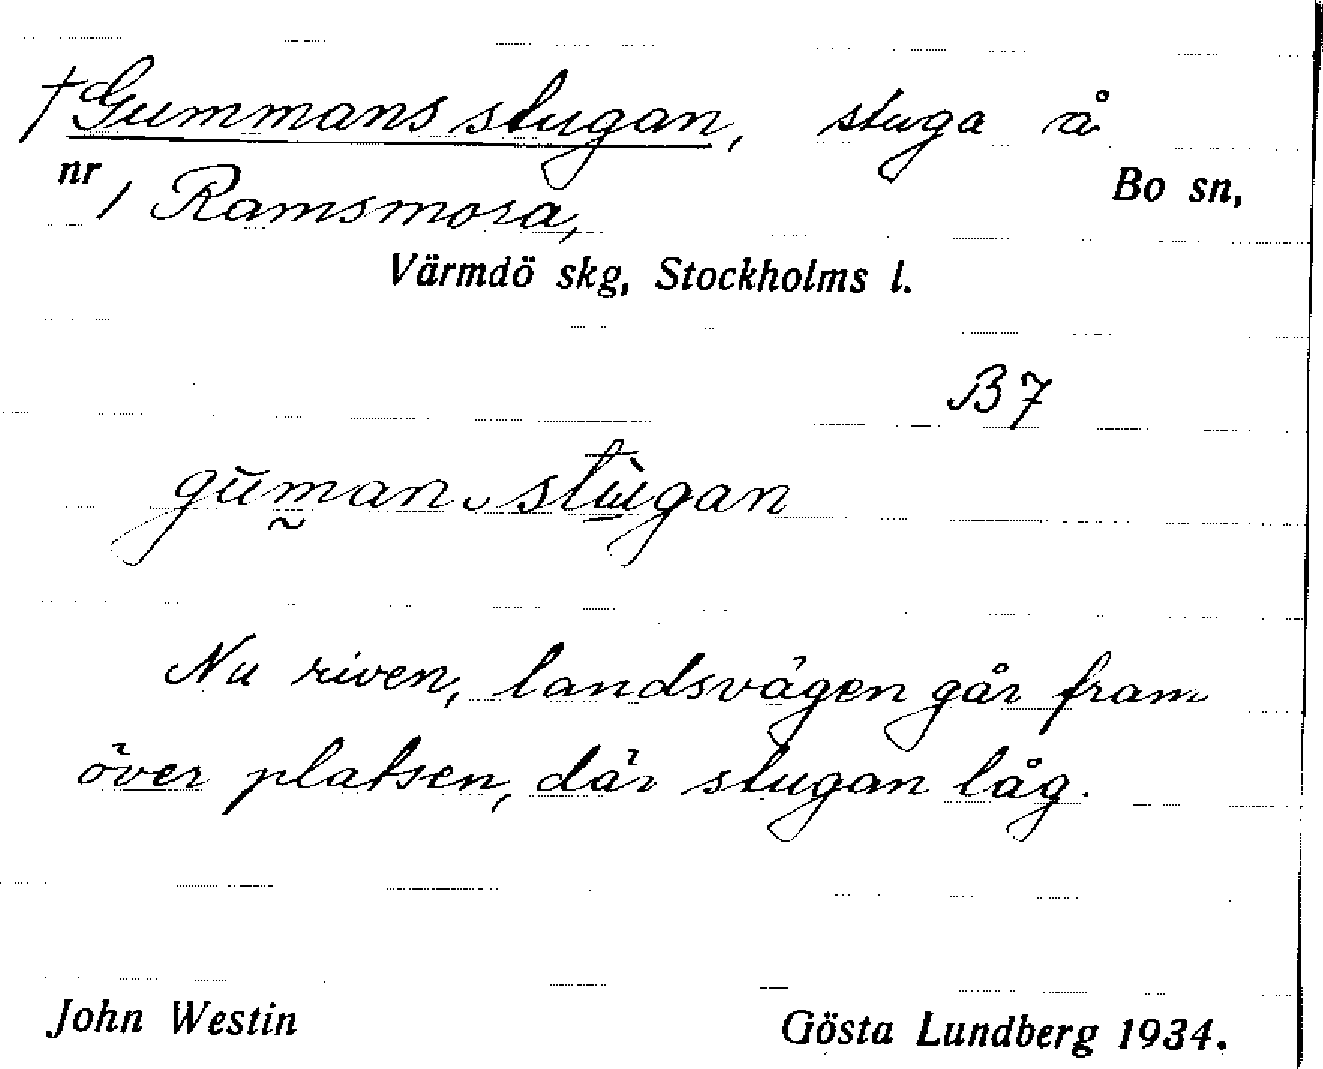 †Gummansstugan, stuga å
nr 1 Ramsmora,
Bo sn,
Värmdö skg, Stockholms l.
B7
guman stugan
Nu riven, landsvägen går fram
över platsen, där stugan låg.
John Westin Gösta Lundberg 1934.